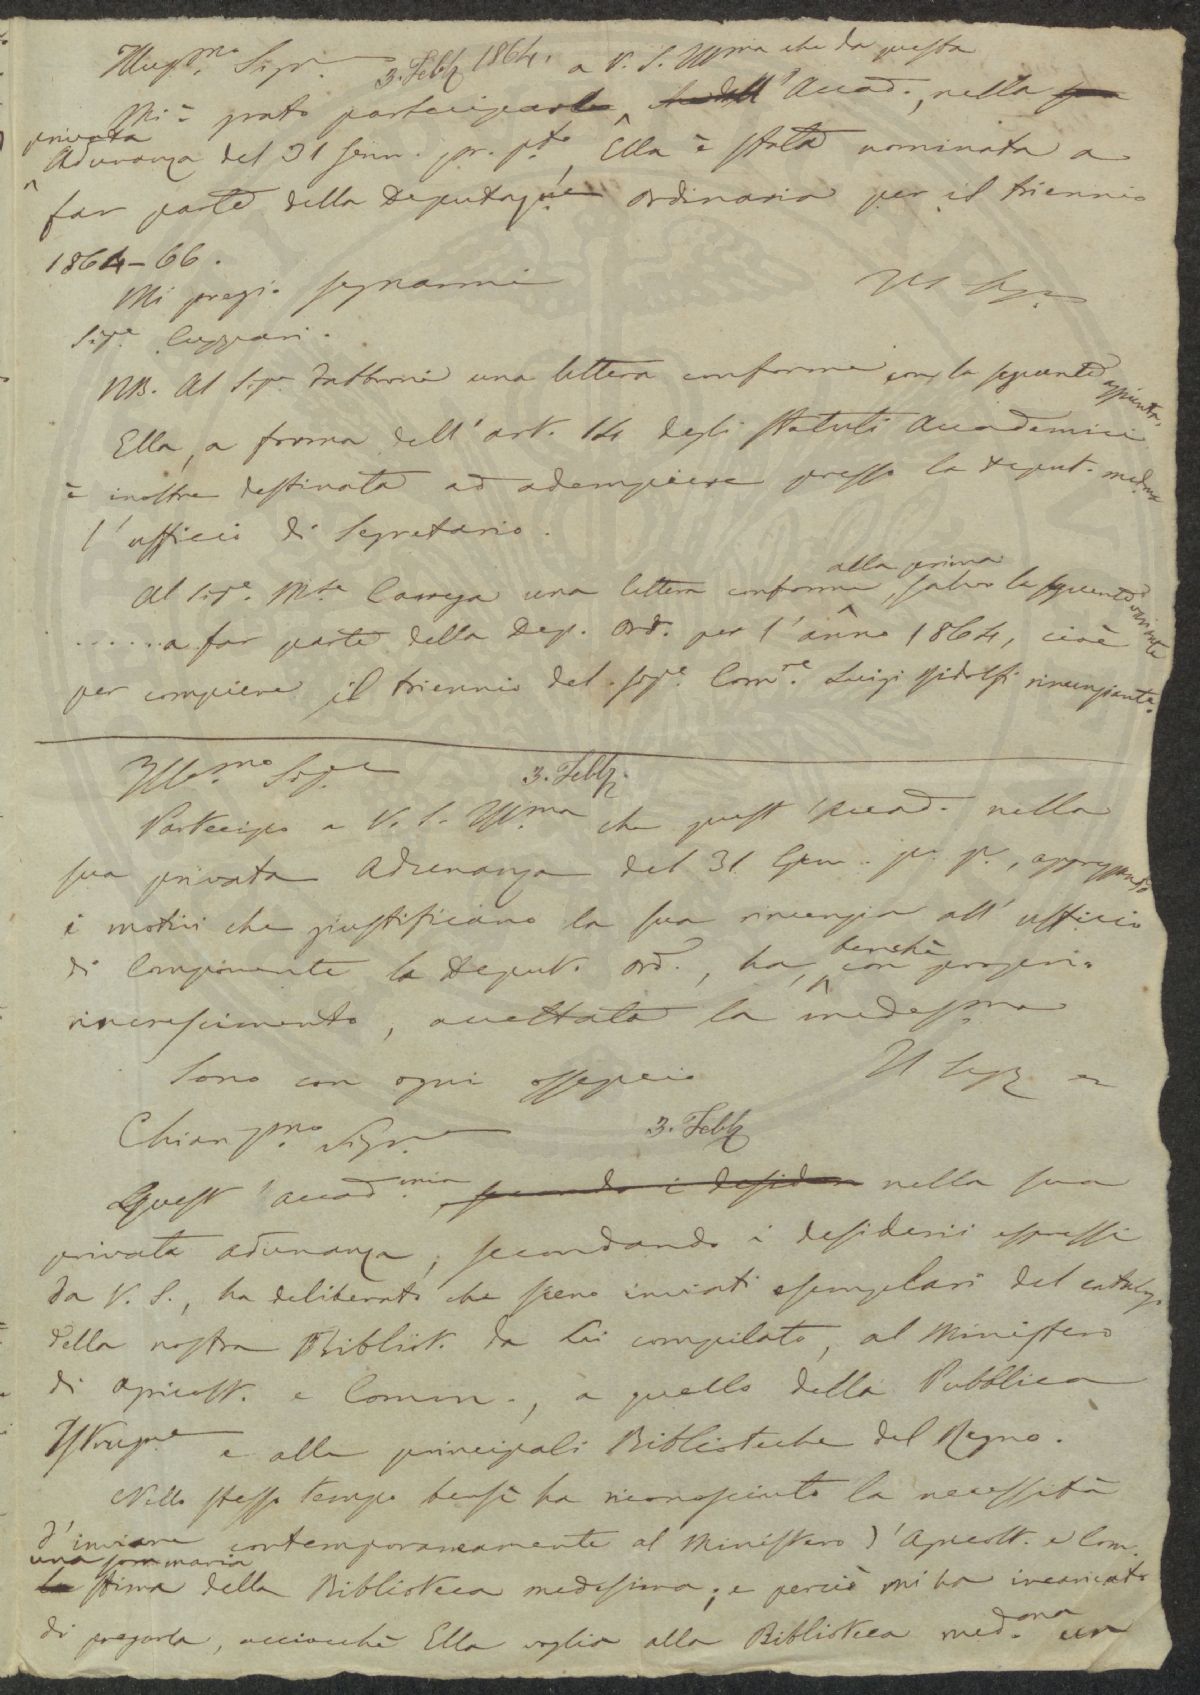 Illus.mo Sigr. 3. Febb. 1864.
Mi è grato partecipare a V. S. Ill.ma che da questa Accad., nella
privata Adunanza del 31 Genn. pr. p.to, Ella è stata nominata a
far parte della Deputaz.ne ordinaria per il triennio
1864-66.
Mi pregio segnarmi Il Seg.
Sig.e Cuppari.
NB. Al Sig.e Fabbroni una lettera conforme con la seguente aggiunta.
Ella, a forma dell' art. 14 degli Statuti Accademici
è inoltre destinata ad adempiere presso la Deput. med.ma
l'ufficio di Segretario.
Al Sig.e M.se Carrega una lettera conforme alla prima, salvo la seguente variante
......a far parte della Dep. Ord. per l'anno 1864, cioè
per compiere il triennio del Sig.e Com.re Luigi Ridolfi rinunziante.
Ill.mo Sig.e 3. Febb.
Partecipo a V. S. Ill.ma che quest' Accad. nella
sua privata Adunanza del 31. Genn. p. p., apprezzando
i motivi che giustificano la sua rinunzia all' ufficio
di Componente la Deput. Ord., ha, benchè con proprio
rincrescimento, accettata la medesma
Sono con ogni ossequio Il Seg.
Chiariss.mo Sigr. 3. Febb
Quest' Accad.mia secondo i desider nella sua
privata adunanza, secondando i desiderii espressi
da V. S., ha deliberato che sieno inviati esemplari del catalogo
della nostra Bibliot. da Lei compilato, al Ministero
di Agricolt. e Comm., a quello della Pubblica
Istruz.ne e alle principali Biblioteche del Regno.
Nello stesso tempo bensì ha riconosciuto la necessità
d'inviare contemporaneamente al Ministero d'Agricolt. e Com.
la una sommaria stima della Biblioteca medesima; e perciò mi ha incaricato
di pregarla, acciocchè Ella voglia alla Biblioteca med.ma